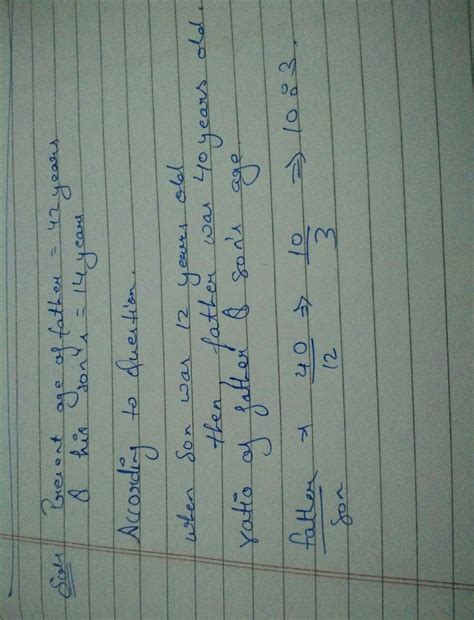 Soln Present age of father = 42 years
& his son's = 14 years
According to Question.
when son was 12 years old
then father was 40 years old.
ratio of father & son's age
father/son → 40/12 ⇒ 10/3 ⇒ 10:3.